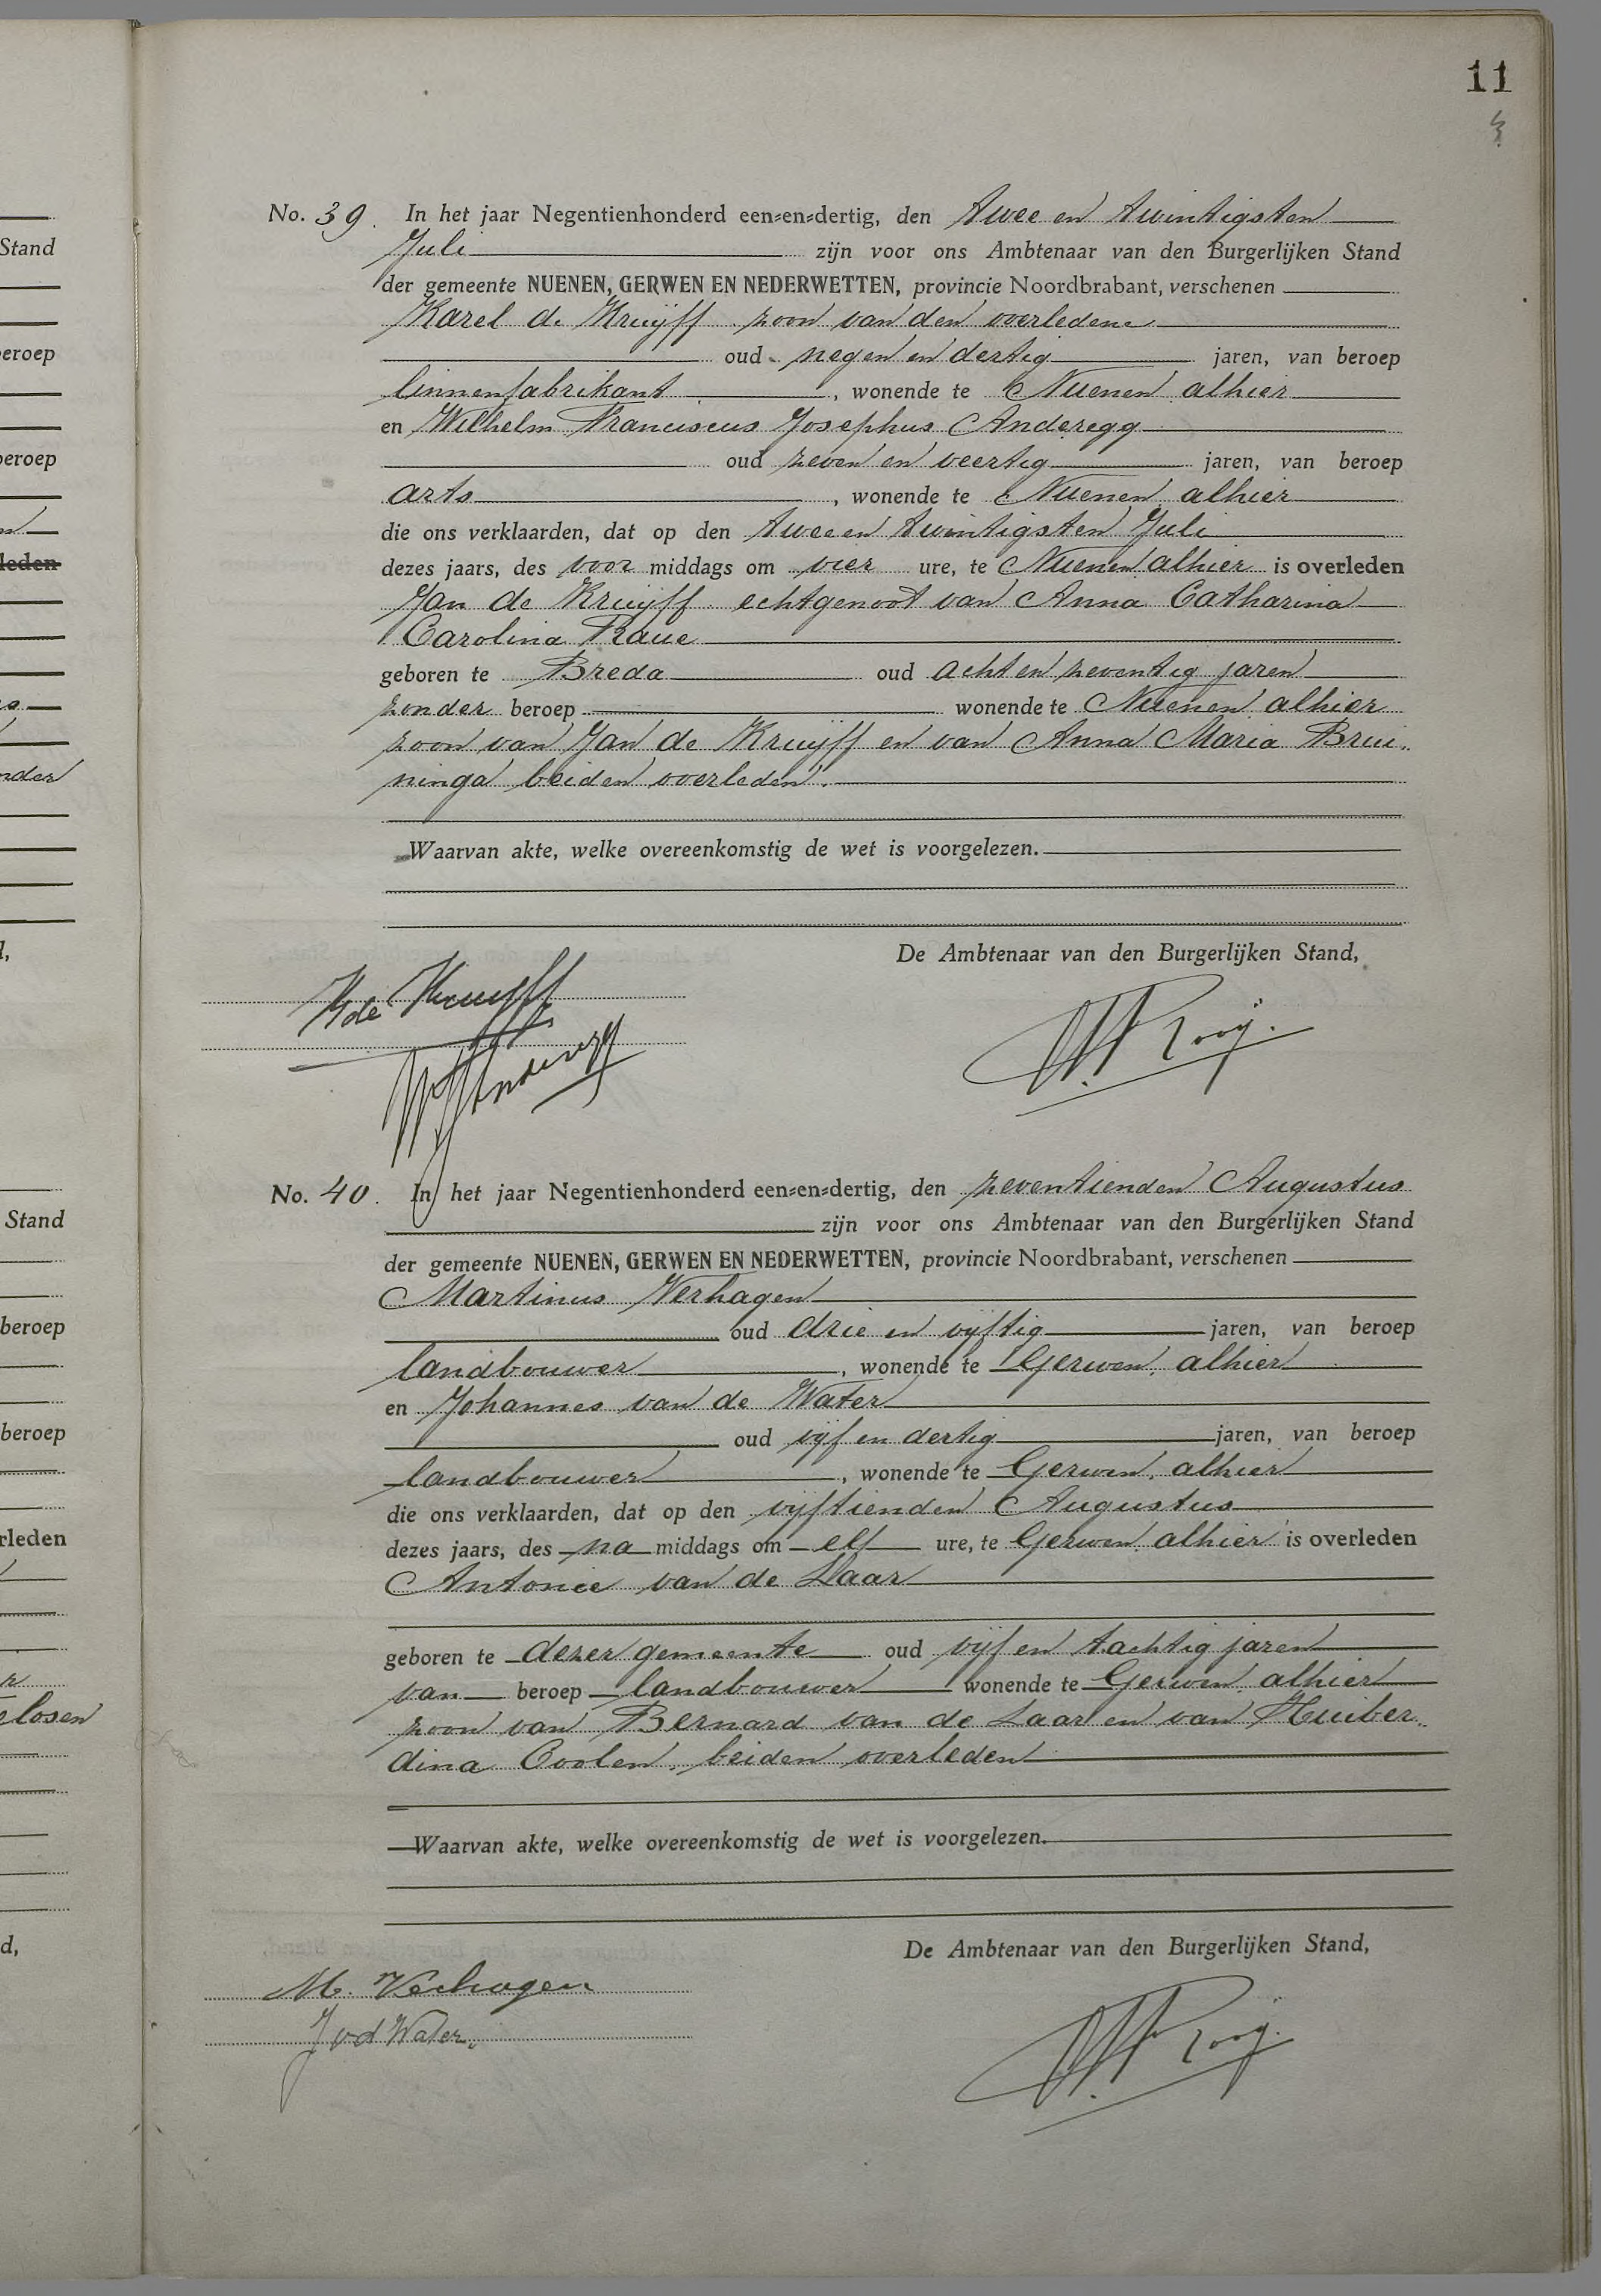 11
No. 39. In het jaar Negentienhonderd een=en=dertig, den twee en twintigsten
Juli zijn voor ons Ambtenaar van den Burgerlijken Stand
der gemeente NUENEN, GERWEN EN NEDERWETTEN, provincie Noordbrabant, verschenen
Karel de Kruijff zoon van den overledene
oud negen en dertig jaren, van beroep
linnenfabrikant, wonende te Nuenen alhier
en Wilhelm Franciscus Josephus Anderegg
oud zeven en veertig jaren, van beroep
arts, wonende te Nuenen alhier
die ons verklaarden, dat op den twee en twintigsten Juli
dezes jaars, des voor middags om vier ure, te Nuenen alhier is overleden
Jan de Kruijff echtgenoot van Anna Catharina
Carolina Raue
geboren te Breda oud acht en zeventig jaren
zonder beroep wonende te Nuenen alhier
zoon van Jan de Kruijff en van Anna Maria Brui„
ninga beiden overleden.
Waarvan akte, welke overeenkomstig de wet is voorgelezen.
De Ambtenaar van den Burgerlijken Stand,
K de Kruijff
Anderegg
No. 40. In het jaar Negentienhonderd een=en=dertig, den zeventienden Augustus
zijn voor ons Ambtenaar van den Burgerlijken Stand
der gemeente NUENEN, GERWEN EN NEDERWETTEN, provincie Noordbrabant, verschenen
Martinus Verhagen
oud drie en vijftig jaren, van beroep
landbouwer, wonende te Gerwen, alhier
en Johannes van de Water
oud vijf en dertig jaren, van beroep
landbouwer, wonende te Gerwen, alhier
die ons verklaarden, dat op den vijftienden Augustus
dezes jaars, des na middags om elf ure, te Gerwen, alhier is overleden
Antonie van de Laar
geboren te dezer gemeente oud vijf en tachtig jaren
van beroep landbouwer wonende te Gerwen, alhier
zoon van Bernard van de Laar en van Huiber„
dina Coolen, beiden overleden
Waarvan akte, welke overeenkomstig de wet is voorgelezen.
De Ambtenaar van den Burgerlijken Stand,
M. Verhagen
J vd Water.